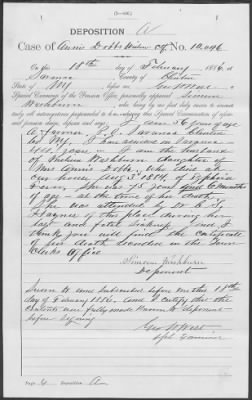 DEPOSITION A
Case of Annie Dobbs Widow Ctf, No. 12,096
On this 18th day of February 1886, at
Saranac, County of Clinton
State of N.Y., before me, Geo W West, a
Special Examiner of the Pension Office, personally appeared Simeon
Washburn, who, being by me first duly sworn to answer
truly all interrogatories propounded to him during this Special Examination of aforesaid
pension claim, deposes and says: I am 56 years of age
a farmer, P.O. Saranac Clinton
Co NY, I have resided in Saranac
years I am the husband
of Washburn daughter of
Mrs Annie Dobbs, who died at
our house Aug 3d 1884, of Typhoid
Fever, She was 75 years and 6 months
of age at the time of her death.
She was attended by Dr
Haynes of this place during her
last and fatal sickness and I
think you will find the certificate
of her death recorded in the Town
Clerks Office
Simeon Washburn
Deponent
Sworn to and subscribed before me this 18th
day of February 1886, and I certify that the
contents were fully made known to deponent
before signing
Geo W West
Spl Examiner
Page Deposition A